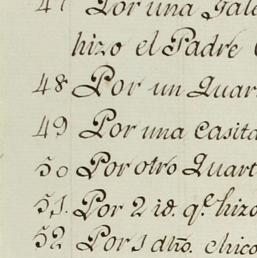 47 Por una Gale
hizo el Padre
48 Por un Quar
49 Por una Casita
50 Por otro Quart
51. Por 2 id. q.e hizo
52 Por 1 dho. chico